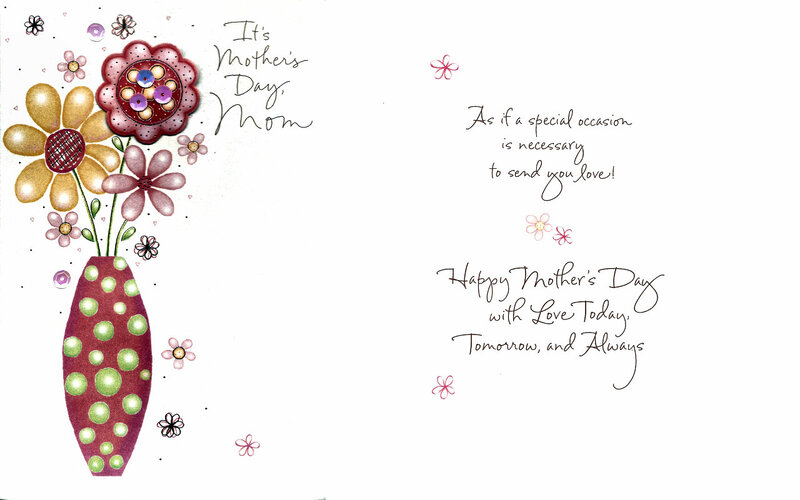 It's
Mother's
Day,
Mom
As if a special occasion
is necessary
to send you love!
Happy Mother's Day
with Love Today,
Tomorrow, and Always